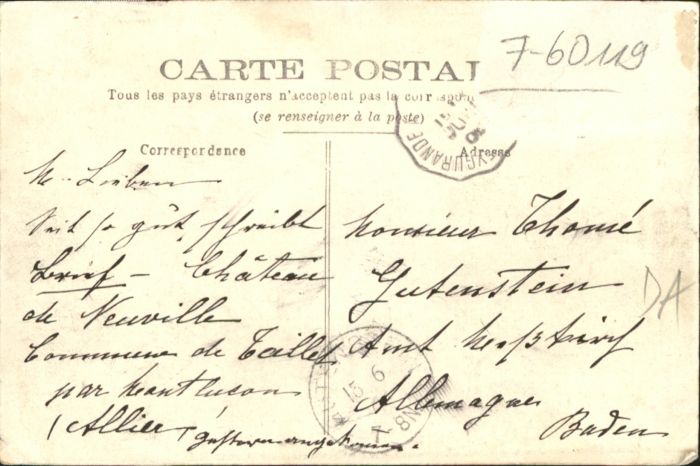 7-60119
CARTE POSTAL
Tous les pays étrangers n'acceptent pas la correspon
(se renseigner à la poste)
EYGURANDE
Correspondance
Adresse
M. Lieben
Seit so gut, schreibt
Brief - Château
de Neuville
Commune de Taillet
par Montlucon
(Allier)
gestern angekommen.
Monsieur Thomé
Gutenstein
Amt Meßkirch
Allemagne
Baden
15 6
DA